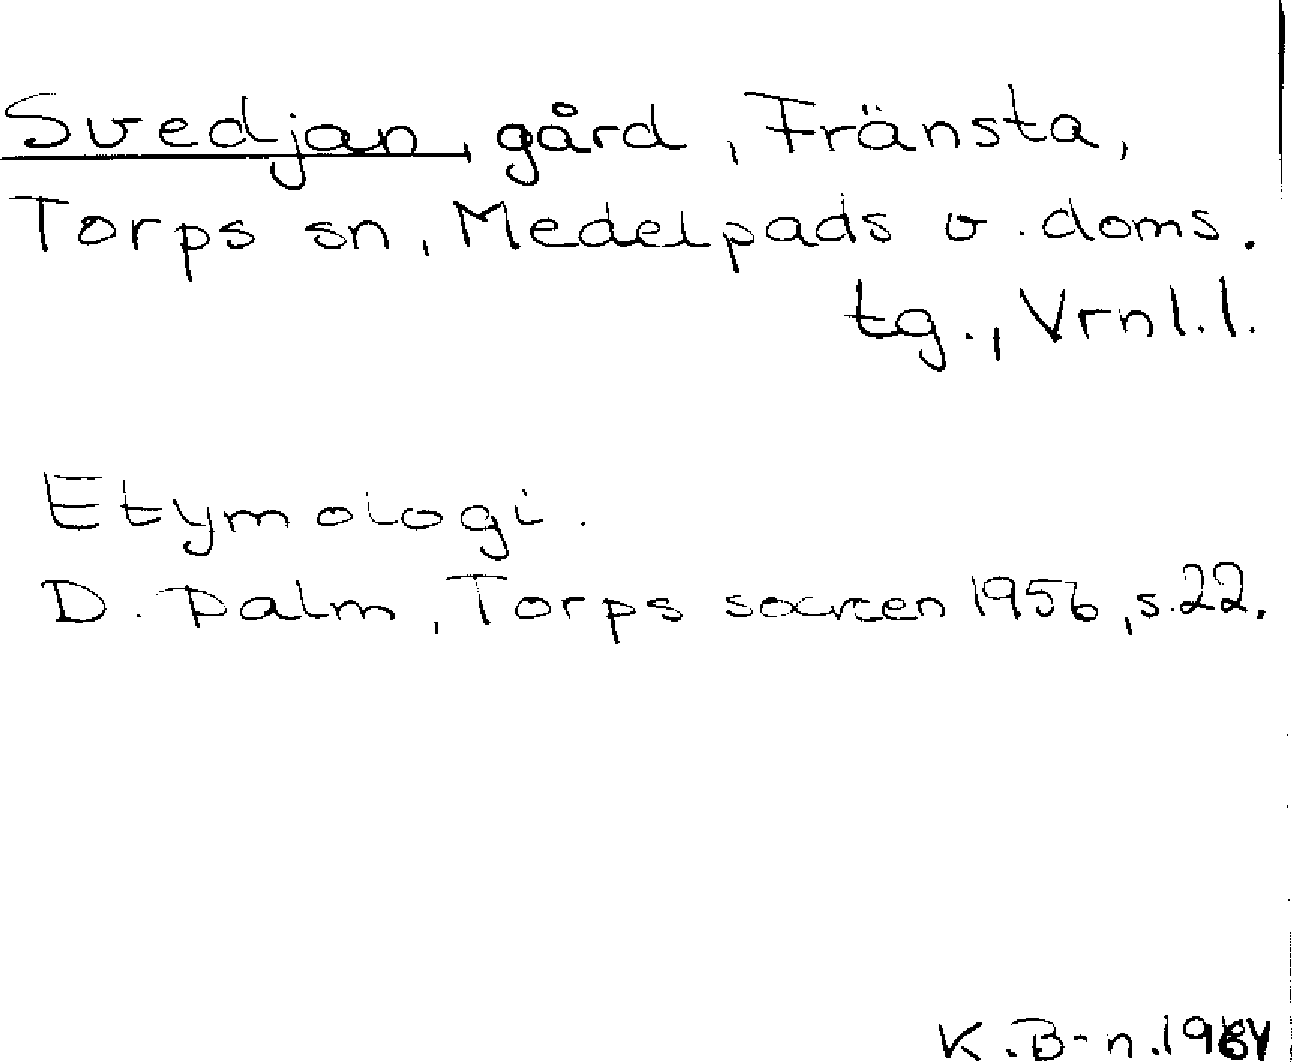 Svedjan, gård, Fränsta,
Torps sn, Medelpads v. doms.
tg., Vrnl. l.
Etymologi.
D. Palm, Torps socken 1956, s. 22.
K. B-n.